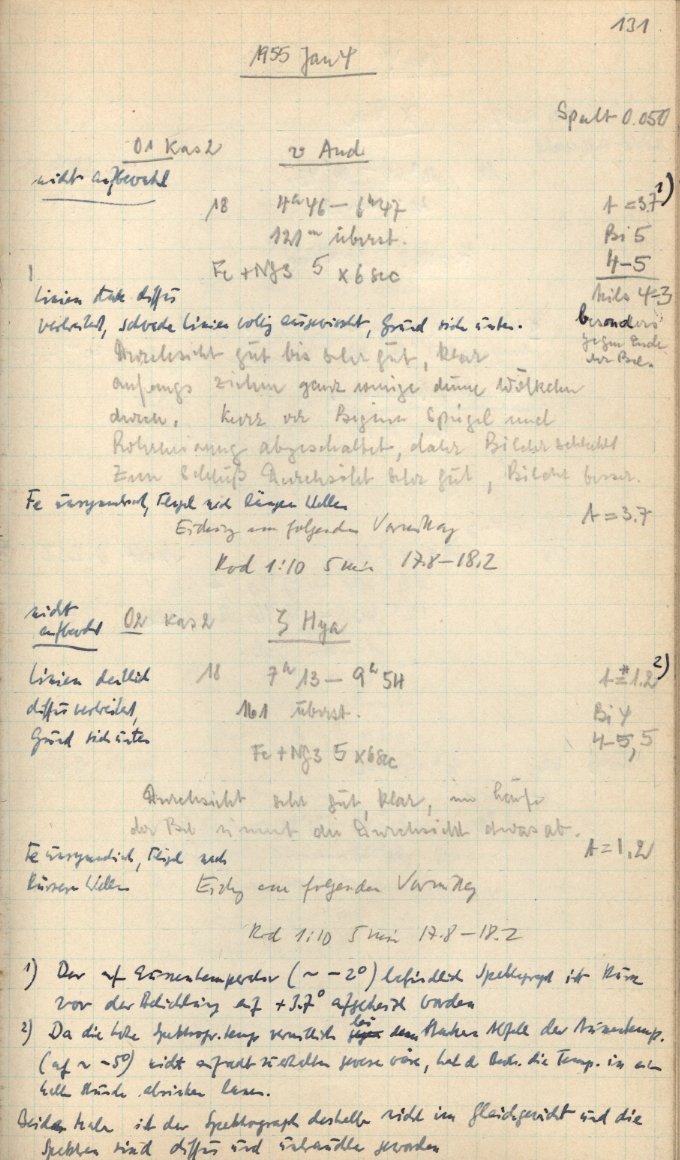 131
1955 Jan 4
Spalt 0.050
01 Kas 2 υ And
nicht aufbewahrt
18 4h46 – 6h47 t = 3.7 1)
121m überst. Bi 5
Fe + Ng 3 5 x 6 sec 4–5
Linien stark diffus
verbreitert, schwache Linien völlig ausgewischt, Grund
besonders
gegen Ende
der Bel.
Durchsicht gut bis sehr gut, klar
anfangs ziehen ganz wenige dünne Wölkchen
durch. Kurz vor Beginn Spiegel und
abgeschaltet, daher Bilder schlecht
Zum Schluß Durchsicht sehr gut, Bilder besser.
Fe unsymmetrisch, Flügel nach längeren Wellen
t = 3.7
am folgenden Vormittag
Rod 1:10 5 min 17.8–18.2
nicht
aufbewahrt 02 Kas 2 ζ Hya
Linien deutlich 18 7h13 – 9h54 t = 1.2 2)
diffus verbreitert, 161 überst. Bi 4
Grund 4–5, 5
Fe + Ng 3 5 x 6 sec
Durchsicht sehr gut, klar, im Laufe
der Bel nimmt die Durchsicht etwas ab.
t = 1,2
Fe unsymmetrisch, Flügel nach
kürzeren Wellen am folgenden Vormittag
Rod 1:10 5 min 17.8–18.2
1) Der auf Aussentemperatur (~ –2°) befindliche Spektrograph ist kurz
vor der Belichtung auf +3.7° aufgeheizt worden
2) Da die hohe Spektrogr.temp vermutlich bei dem starken Abfall der Aussentemp.
(auf ~ –5°) nicht aufrecht zu erhalten gewesen wäre, hat d. Beob. die Temp. in
halben Stunde absinken lassen.
Beide Male ist der Spektrograph deshalb nicht im Gleichgewicht und die
Spektren sind diffus und unbrauchbar geworden